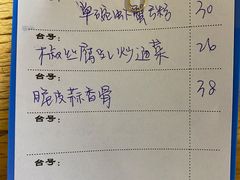 单碗虾蟹粉 30
台号：
椒丝腐乳炒通菜 26
台号：
脆皮蒜香骨 38
台号：
台号：